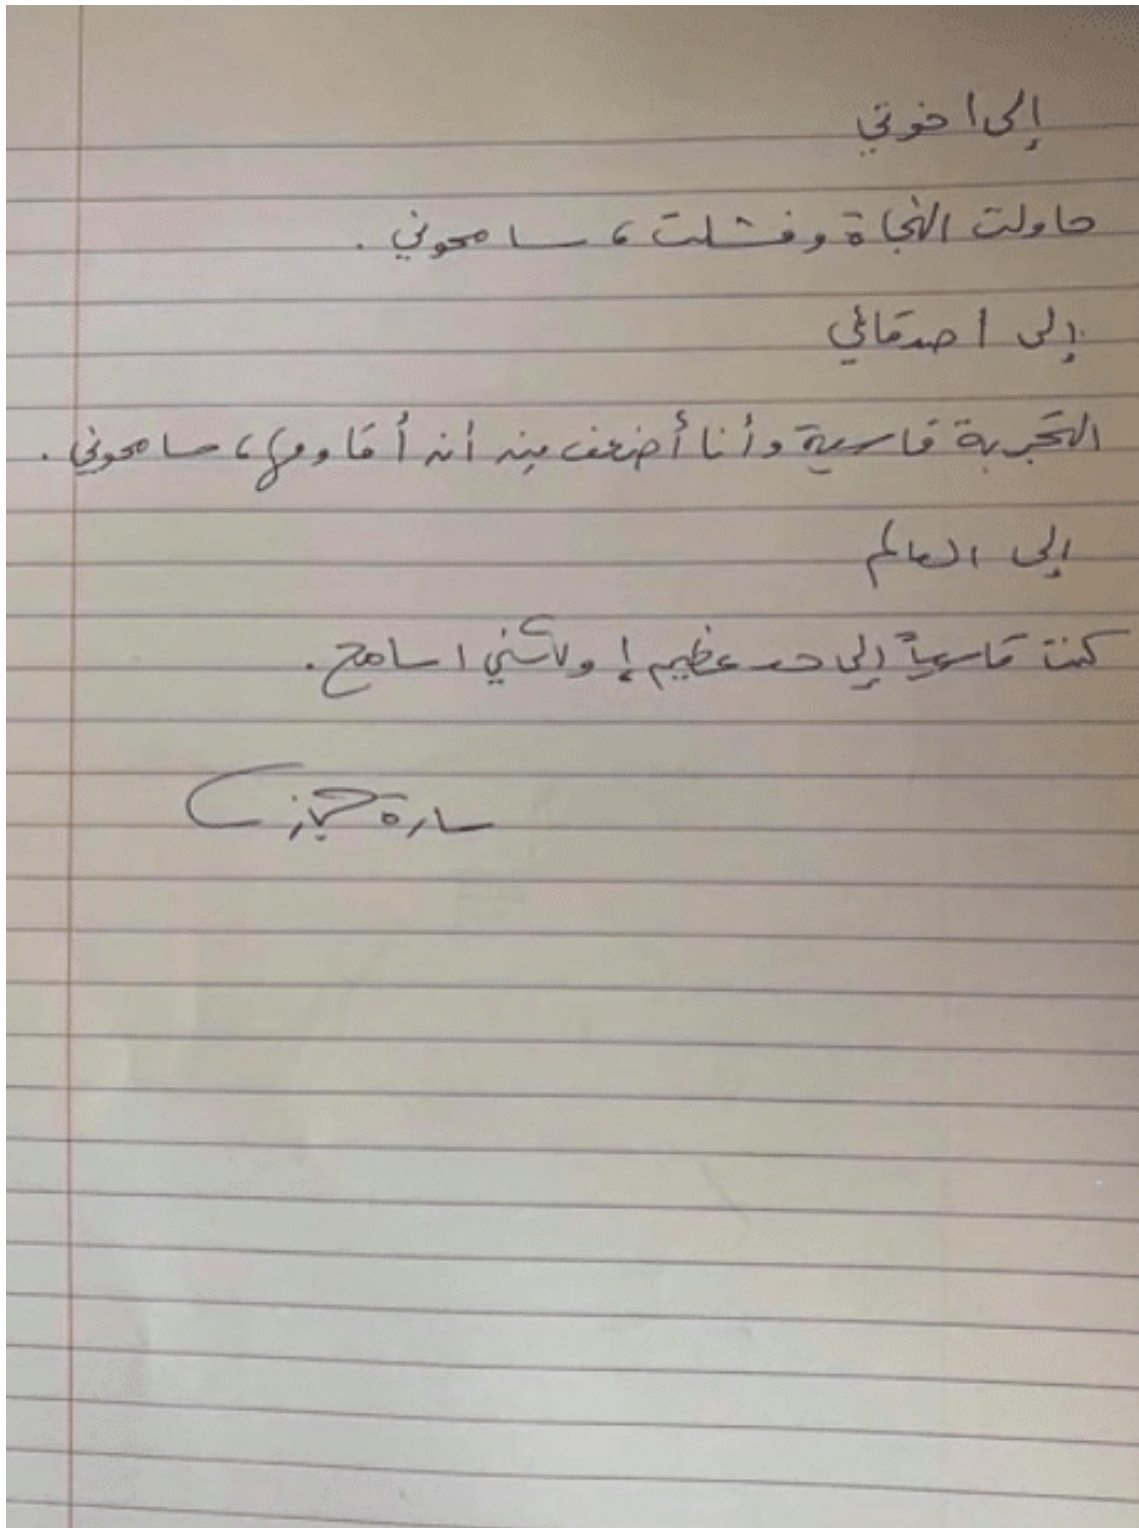 إلى اخوتي
حاولت النجاة وفشلت، سامحوني.
إلى اصدقائي
التجربة قاسية وأنا أضعف من أن أقاومها، سامحوني.
إلى العالم
كنت قاسياً إلى حد عظيم! ولكني اسامح.
سارة حجازي